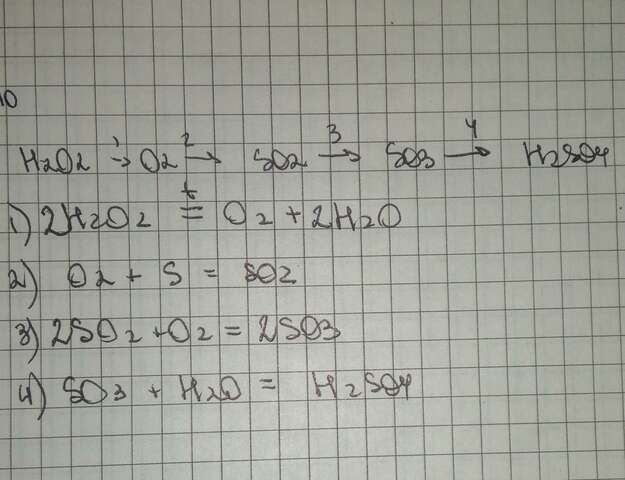 10
H2O2 →¹ O2 →² SO2 →³ SO3 →⁴ H2SO4
1) 2H2O2 =ᵗ O2 + 2H2O
2) O2 + S = SO2
3) 2SO2 + O2 = 2SO3
4) SO3 + H2O = H2SO4